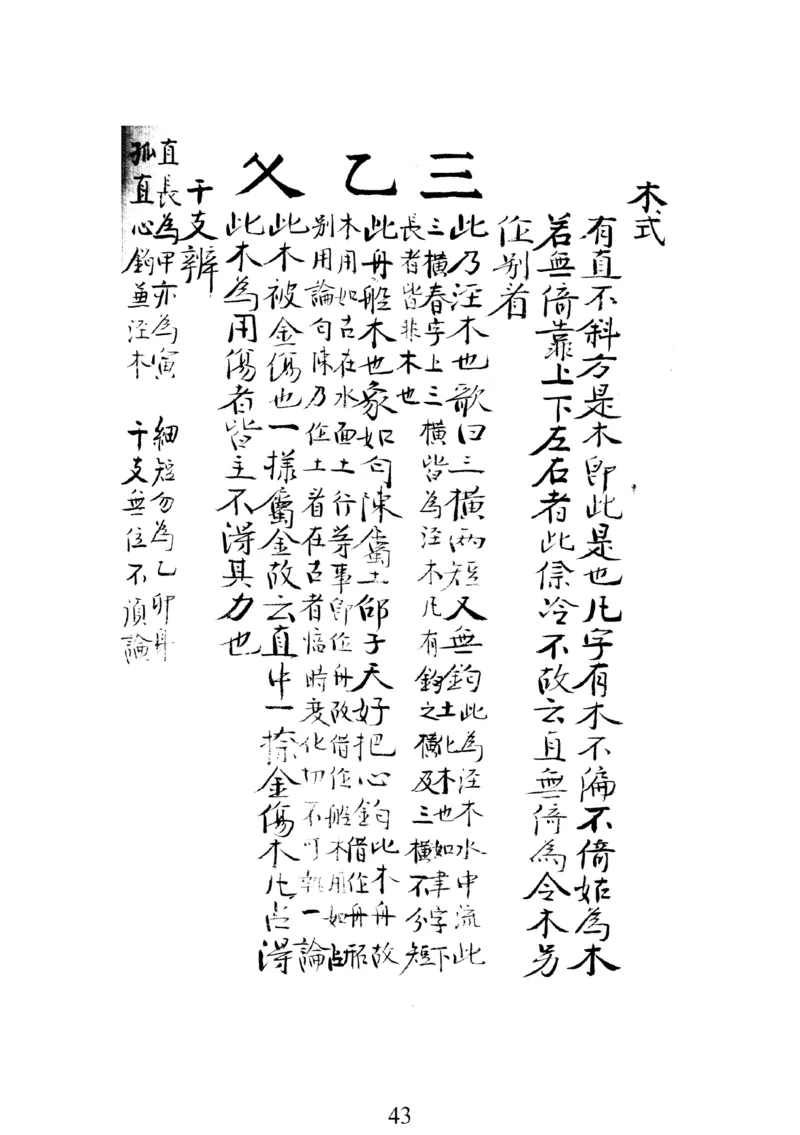 木式
有直不斜方是木即此是也凡字有木不偏不倚始為木
若無倚靠上下左右者此係冷木故云直無倚為令木另
作別看
三
此乃湮木也歌曰三橫兩短又無鈎此為湮木水中流此
三橫春字上三橫皆為湮木凡有鈎之橫及三橫不分短
長者皆非木也
土化木也如聿字下
乙
此舟船木也象如勾陳屬土邰子天好把心鈎此木舟故
木用如古在水面土行等事即作舟故借作船木用如占
借作舟船
別用論勾陳乃作土看在古者悟時度化切不可執一論
乂
此木被金傷也一樣屬金故云直中一捺金傷木凡占得
此木為用傷者皆主不得其力也
干支辨
直長為甲亦為寅 細短勿為乙卯身
孤直心鈎並湮木 干支無位不須論
43